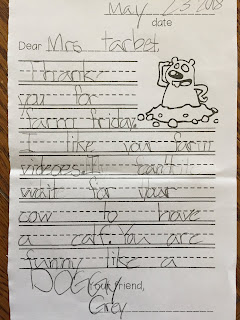 May 23 2018
date
Dear Mrs. Tarbet,
Thank
you for
farm friday.
I like your farm
videoes. I can't
wait for your
cow to have
a calf. You are
funny like a
Doggy
Your friend,